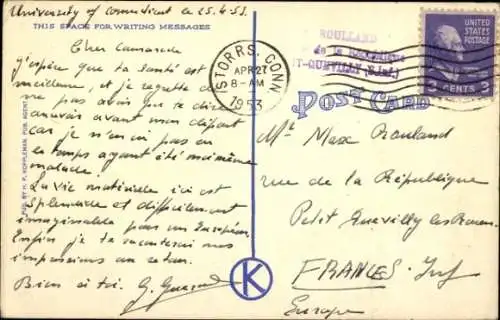 University of Connecticut le 25.4.53
THIS SPACE FOR WRITING MESSAGES
Cher Camarade
J'espère que ta santé est
meilleure, et je regrette de
ne pas avoir pu te dire
au revoir avant mon départ
car je n'en ai pas eu
le temps ayant été moi-même
malade.
La vie matérielle ici est
splendide et difficilement
imaginable pour un Européen.
Enfin je te raconterai mes
impressions au retour.
Bien à toi. G.
PUB. BY H. P. KOPPLEMAN, PUB. AGENT
STORRS. CONN
APR 27
8-AM
1953
ROULLAND
de la République
T-QUEVILLY (S.Inf.)
UNITED STATES POSTAGE
3 CENTS 3
POST CARD
Mr Max Roulland
rue de la République
Petit Quevilly les Rouen
FRANCE S. Inf
Europe
K